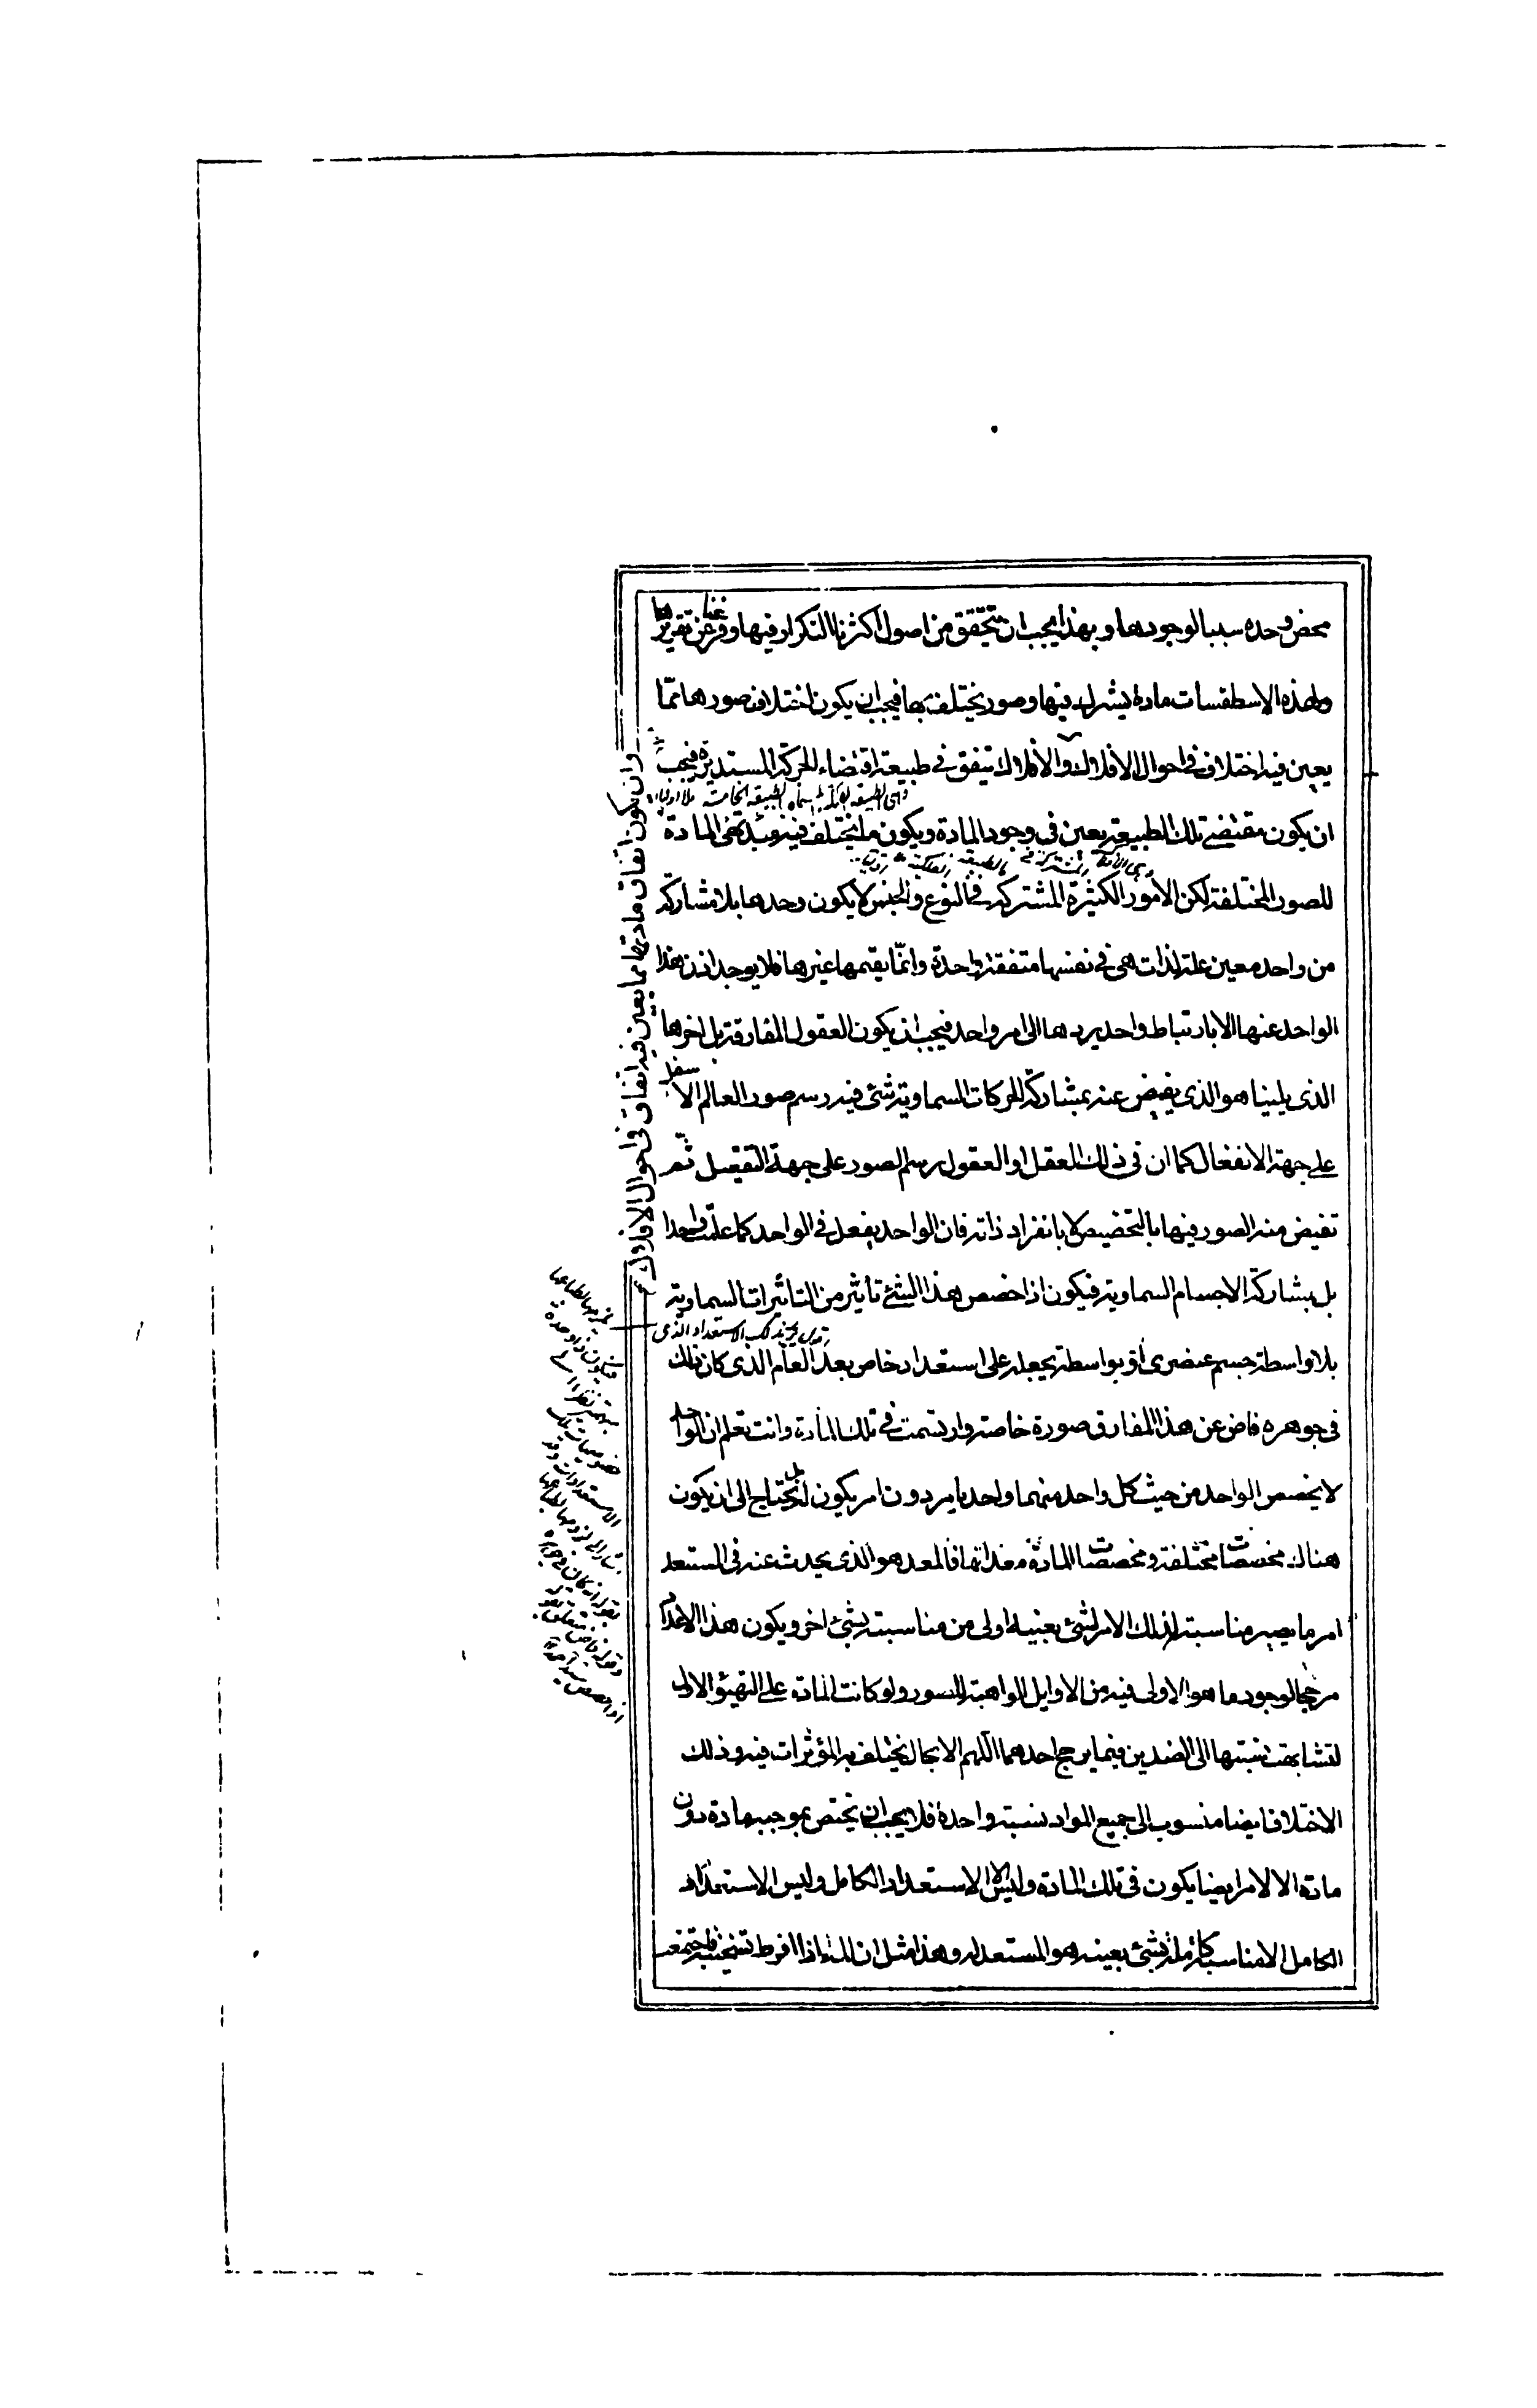 محض وحده سببا لوجودها و بهذا يجب ان تتحقق من اصول اكثرنا التكرار فيها و فرغنا عن تقريرها
ولهذه الاسطقسات مادة يشترك فيها وصور يختلف بها فيجب ان يكون اختلاف صورها مما
يعين فيه اختلاف في احوال الافلاك والافلاك تتفق في طبيعة اقتضاء الحركة المستديرة فيجب
ان يكون مقتضى تلك الطبيعة يعين في وجود المادة ويكون ما يختلف فيه مبدء تهيئ المادة
للصور المختلفة لكن الامور الكثيرة المشتركة في النوع والجنس لا يكون وحدها بلا مشاركة
من واحد معين علة لذات هي في نفسها متفقة واحدة وانما يقيمها غيرها فلا يوجد اذن هذا
الواحد عنها الا بارتباط واحد يردها الى امر واحد فيجب ان يكون العقول المفارقة بل اخرها
الذي يلينا هو الذي يفيض عنه بمشاركة الحركات السماوية شئ فيه رسم صور العالم الاسفل
على جهة الانفعال كما ان في ذلك العقل او العقول رسم الصور على جهة التفعيل ثم
تفيض منه الصور فيها بالتخصيص لا بانفراد ذاته فان الواحد يفعل في الواحد كما علمت واحدا
بل بمشاركة الاجسام السماوية فيكون اذا خصص هذا الشئ تأثير من التاثيرات السماوية
بلا واسطة جسم عنصرى او بواسطة يجعله على استعداد خاص بعد العام الذى كان ذلك
في جوهره فاض عن هذا المفارق صورة خاصة وارتسمت في تلك المادة وانت تعلم ان الواحد
لا يخصص الواحد من حيث كل واحد منهما واحد بامر دون امر يكون له بل يحتاج الى ان يكون
هناك مخصصات مختلفة ومخصصات المادة معداتها فالمعد هو الذى يحدث عنه في المستعد
امر ما يصير مناسبته لذلك الامر لشئ بعينه اولى من مناسبته لشئ اخر ويكون هذا الاعداد
مرجحا لوجود ما هو الاولى فيه من الاوايل الواهبة للصور ولو كانت المادة على التهيؤ الاول
لتشابهت نسبتها الى الضدين فيما يرجح احدهما اللهم الا بحال يختلف به المؤثرات فيه وذلك
الاختلاف ايضا منسوب الى جميع المواد نسبة واحدة فلا يجب ان يختص بموجبه مادة دون
مادة الا لامر ايضا يكون في تلك المادة وليس الا الاستعداد الكامل وليس الاستعداد
الكامل الا مناسبة كاملة لشئ بعينه هو المستعد له وهذا مثل ان الماء اذا افرط تسخينه فاجتمعت
وان يكون اتفاق مادتها مما يعين فيه اتفاق في احوال الافلاك